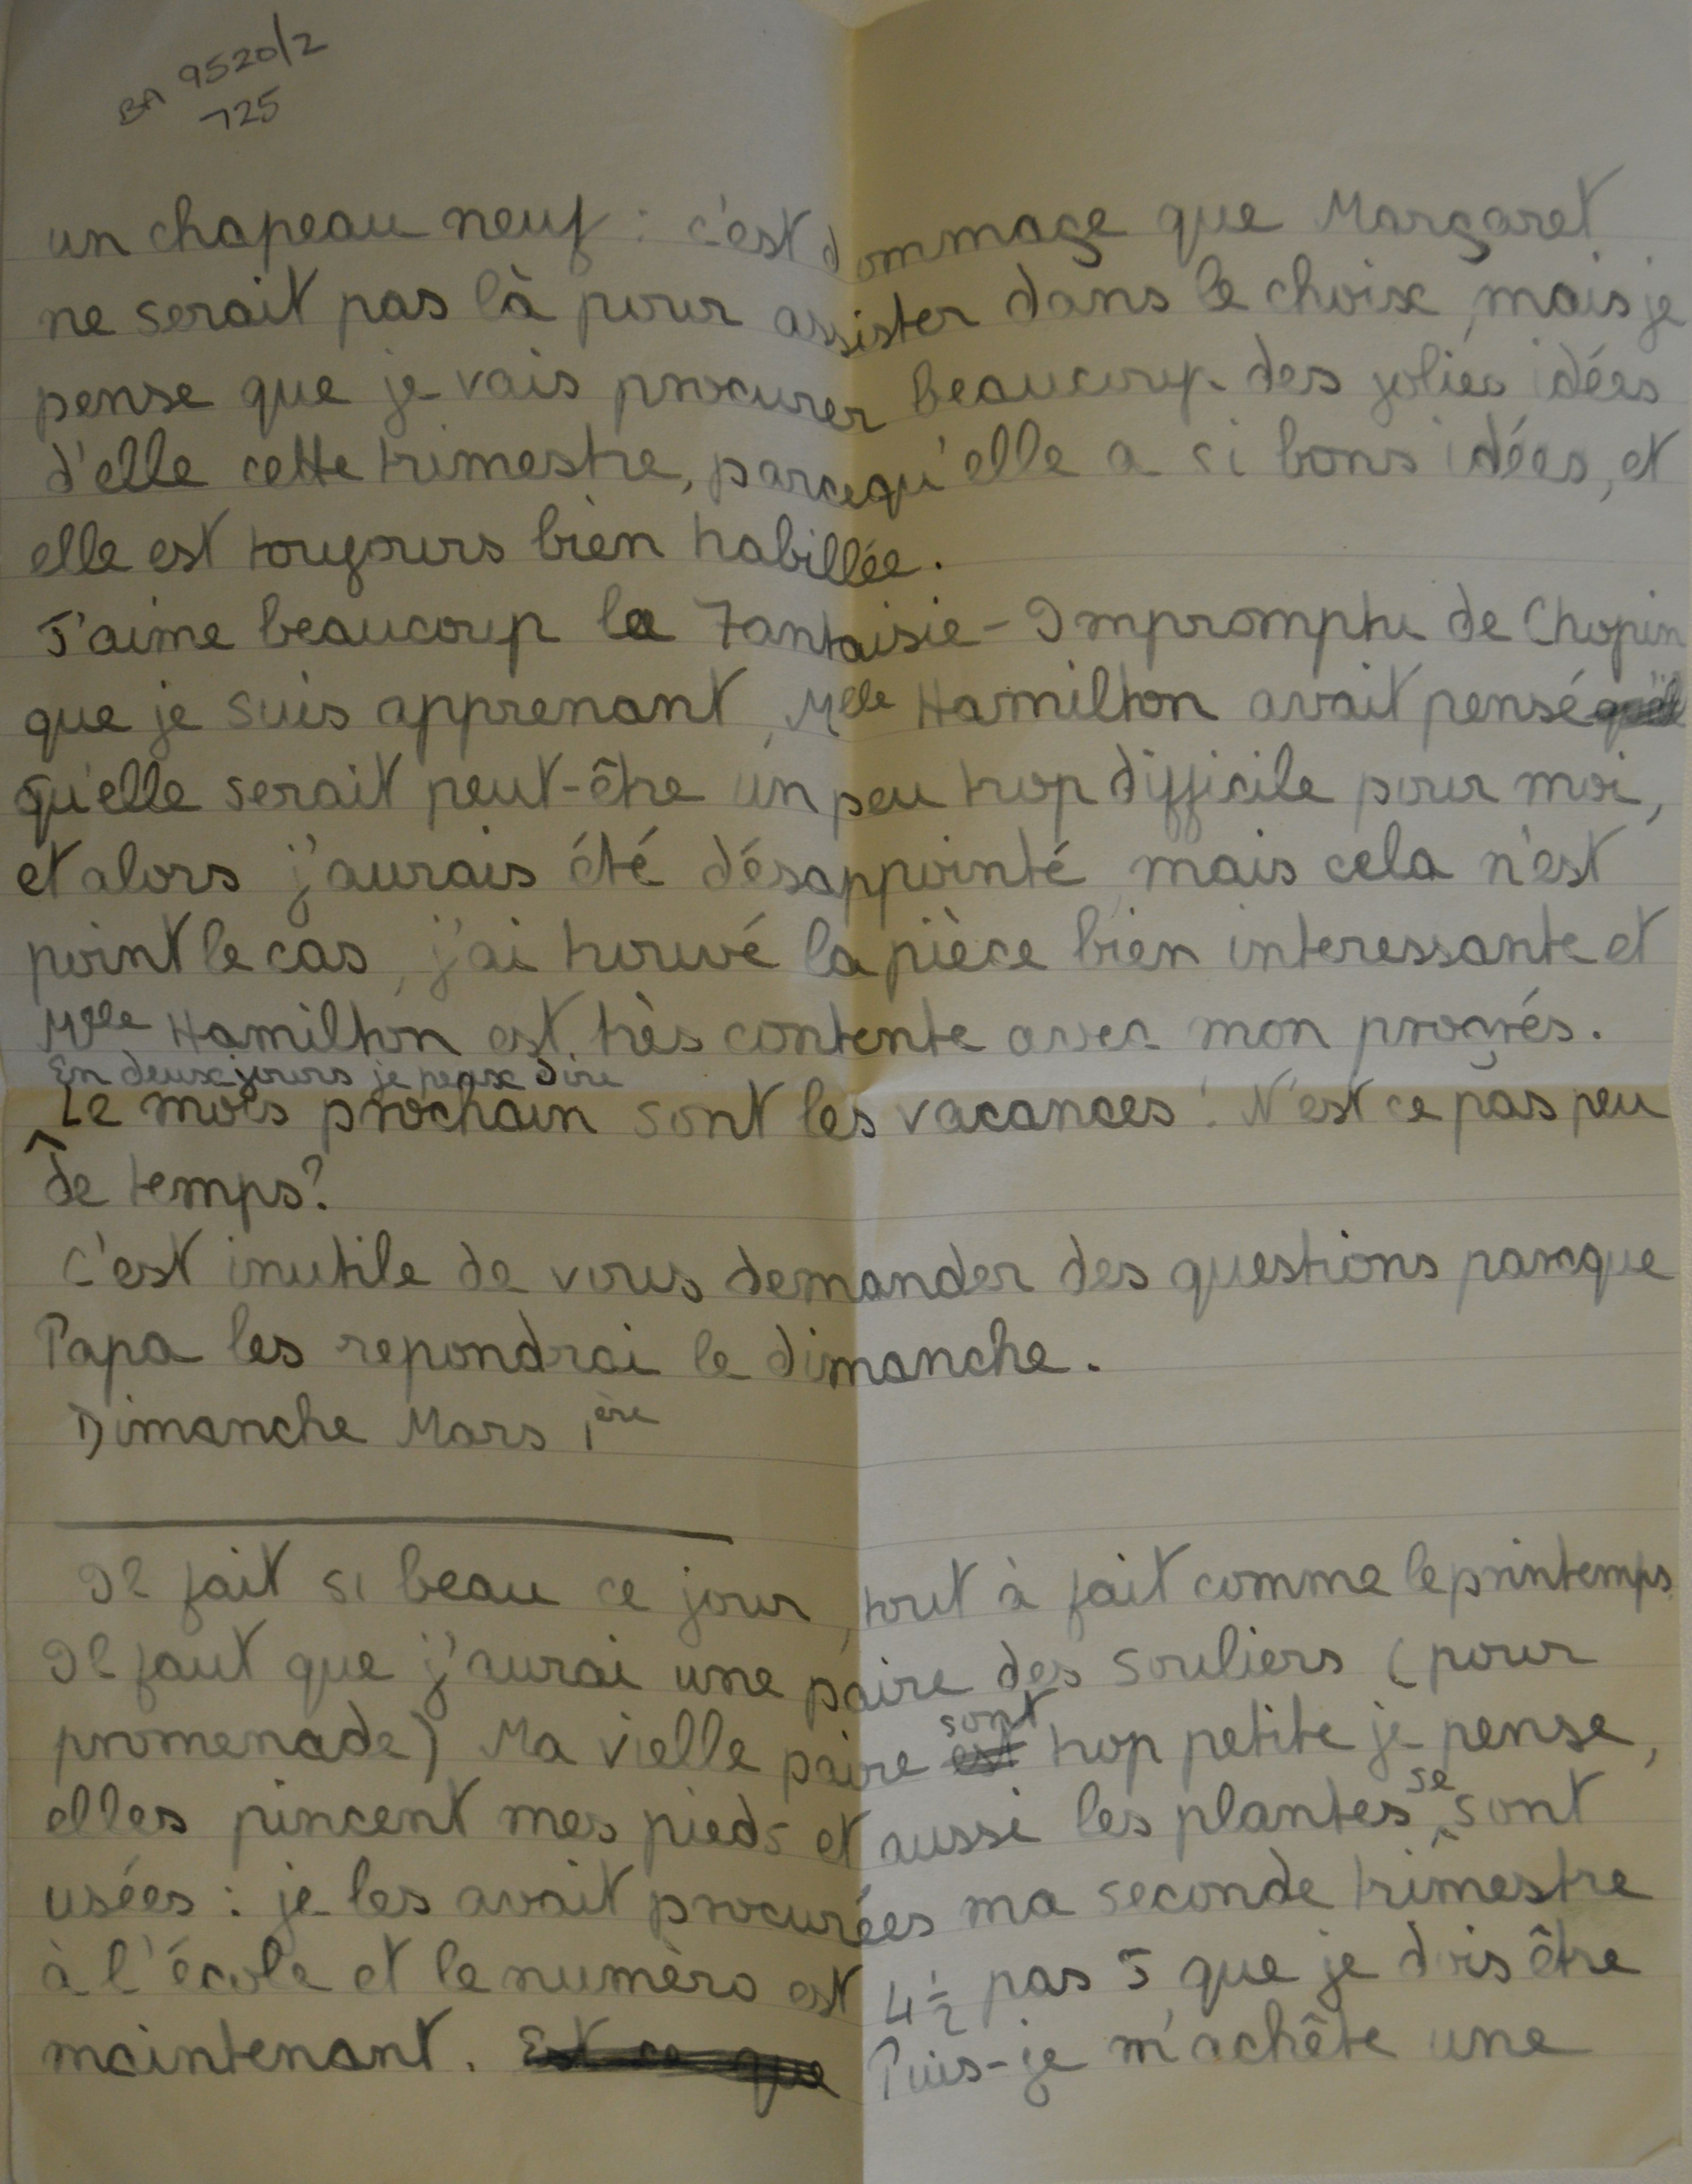 BA 9520/2
725
un chapeau neuf : c'est dommage que Margaret
ne serait pas là pour assister dans le choix, mais je
pense que je vais procurer beaucoup des jolies idées
d'elle cette trimestre, parcequ'elle a si bons idées, et
elle est toujours bien habillée.
J'aime beaucoup la Fantaisie-Impromptu de Chopin
que je suis apprenant, Mlle Hamilton avait pensé
qu'elle serait peut-être un peu trop difficile pour moi,
et alors j'aurais été désappointé, mais cela n'est
point le cas, j'ai trouvé la pièce bien interessante et
Mlle Hamilton est très contente avec mon progrés.
En deux jours je peux dire
Le mois prochain sont les vacances! N'est ce pas peu
de temps?
C'est inutile de vous demander des questions parceque
Papa les repondrai le dimanche.
Dimanche Mars 1ère
Il fait si beau ce jour, tout à fait comme le printemps.
Il faut que j'aurai une paire des souliers (pour
promenade) Ma vielle paire est sont trop petite je pense,
elles pincent mes pieds et aussi les plantes se sont
usées : je les avait procurées ma seconde trimestre
à l'école et le numèro est 4½ pas 5 que je dois être
maintenant. Est ce que Puis-je m'achête une